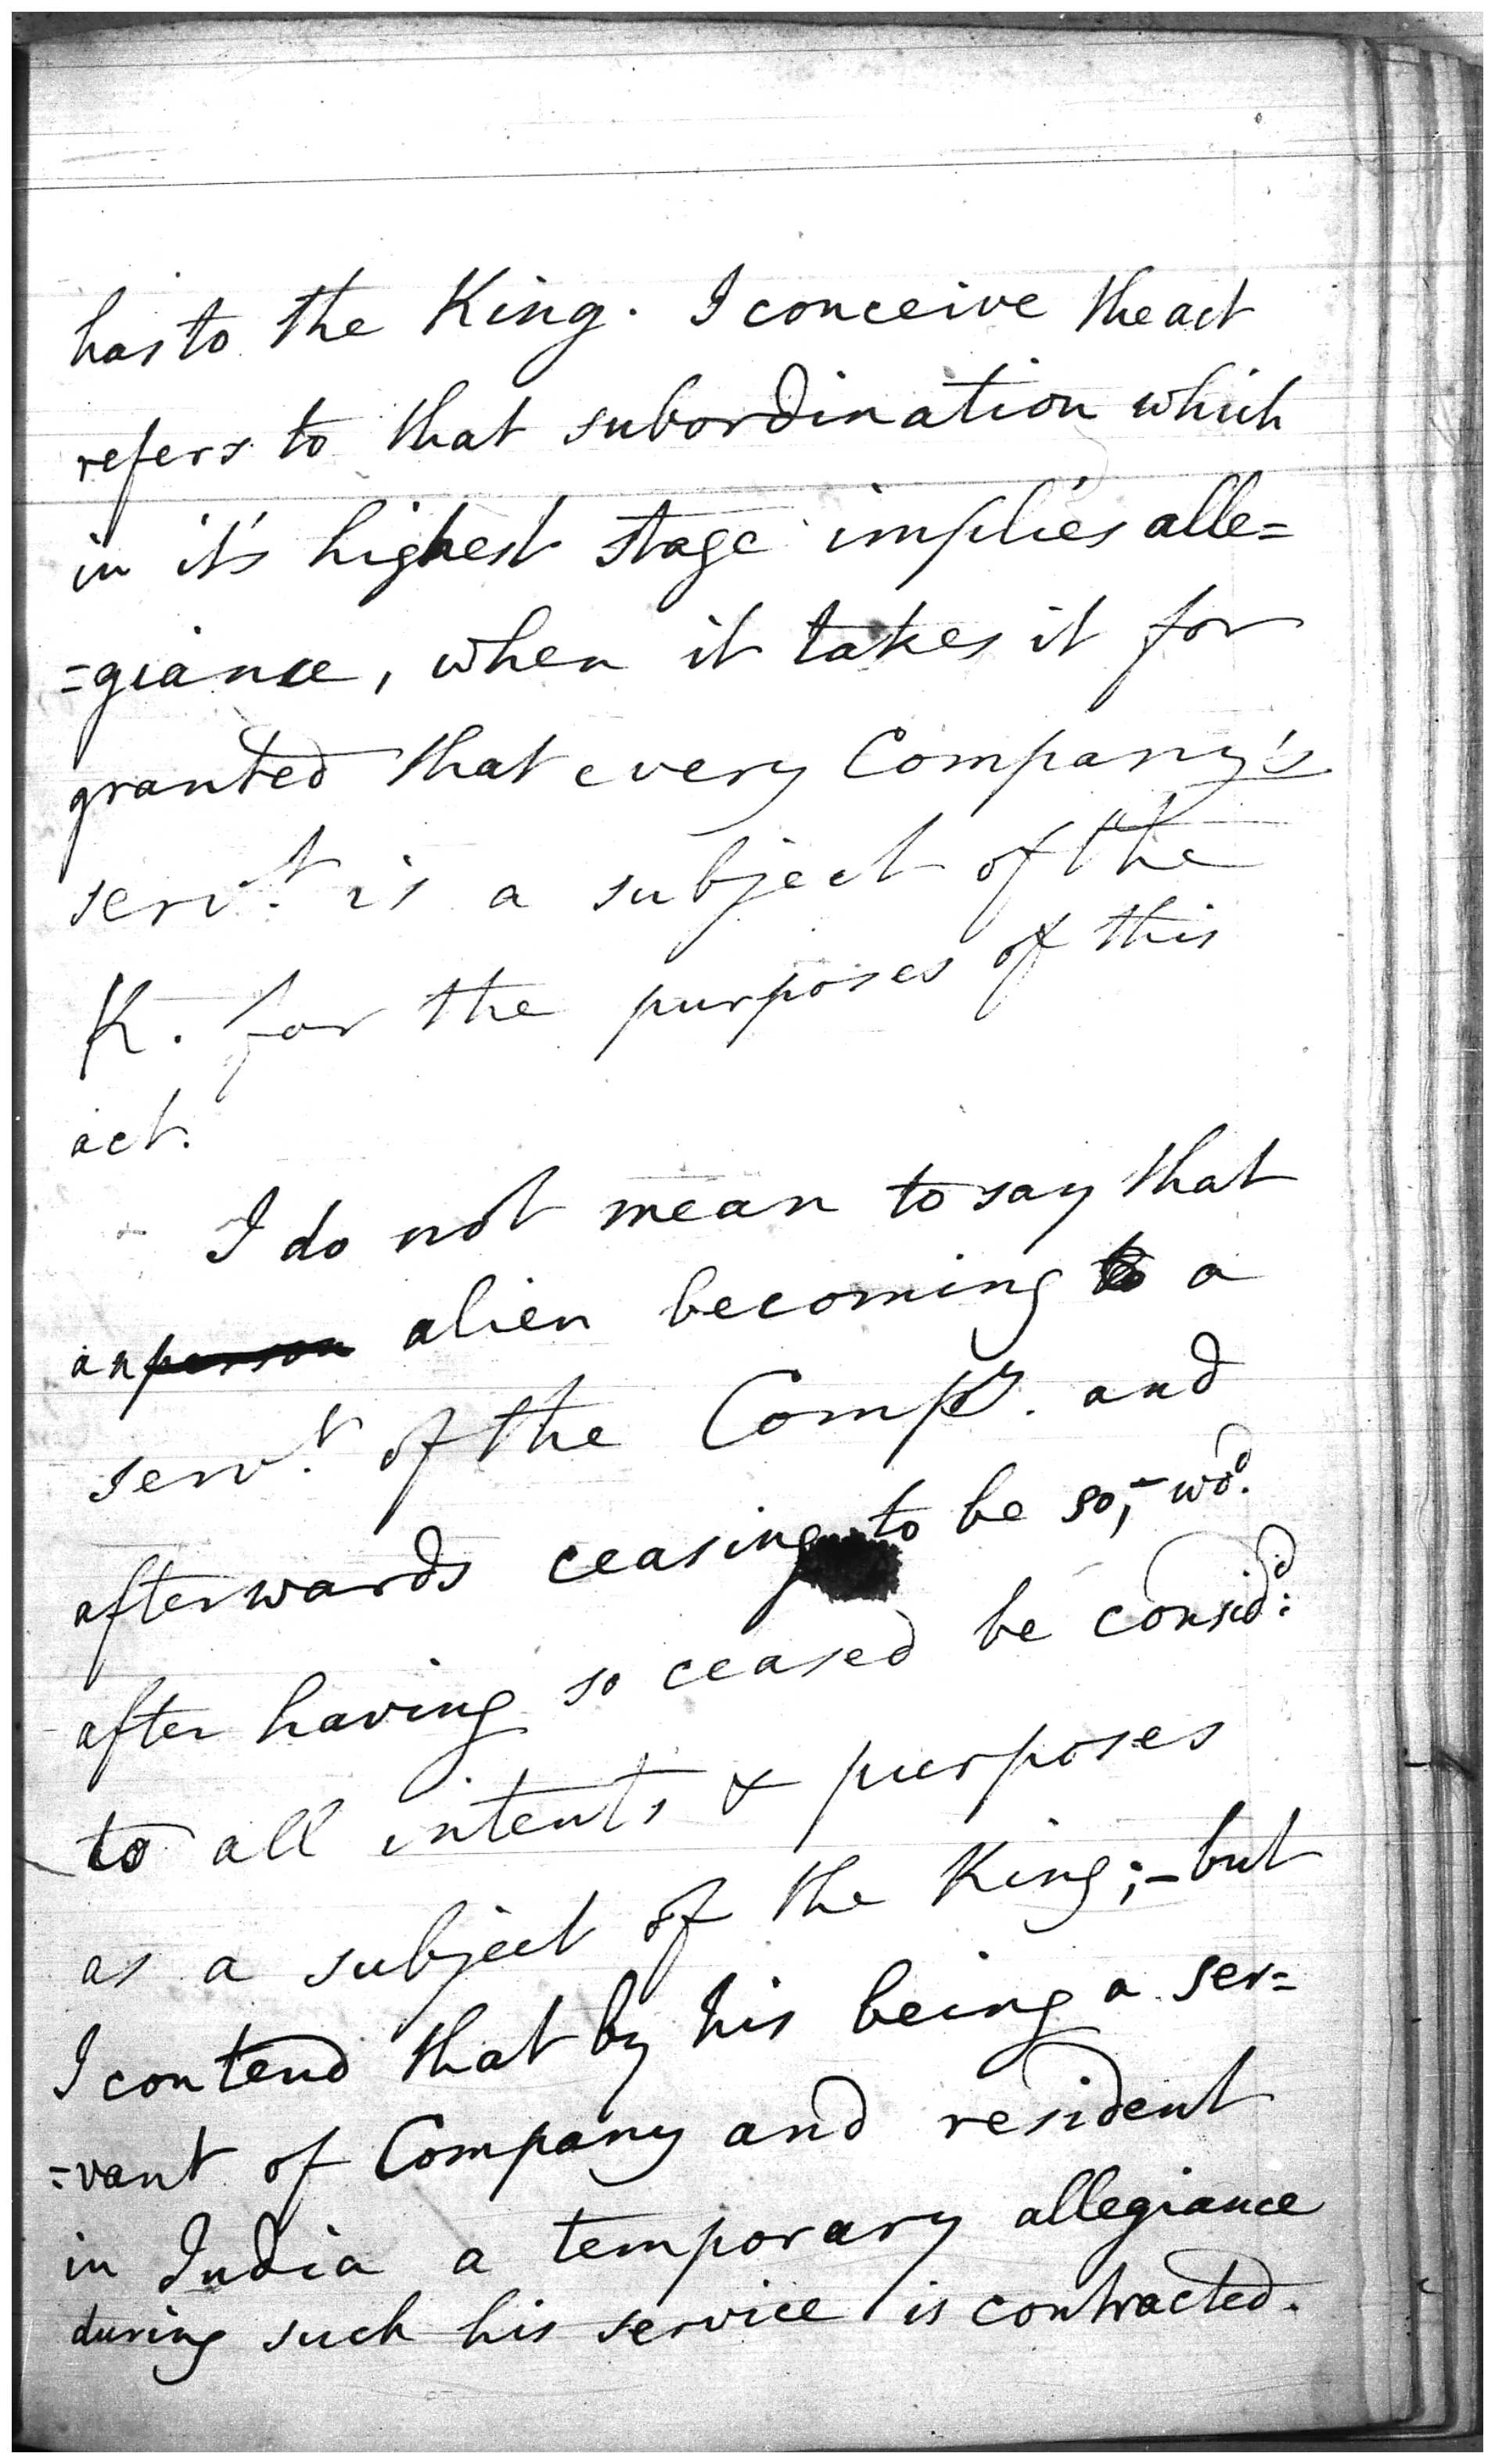 has to the King. I conceive the act
refers to that subordination which
in it's highest stage implies alle=
=giance, when it takes it for
granted that every Company's
serv.t is a subject of the
K. for the purposes of this
act.
I do not mean to say that
an person alien becoming to a
serv.t of the Comp.y and
afterwards ceasing to be so,- wo.d
after having so ceased be consid.d:
to all intents & purposes
as a subject of the King;- but
I contend that by his being a ser=
=vant of Company and resident
in India a temporary allegiance
during such his service is contracted.